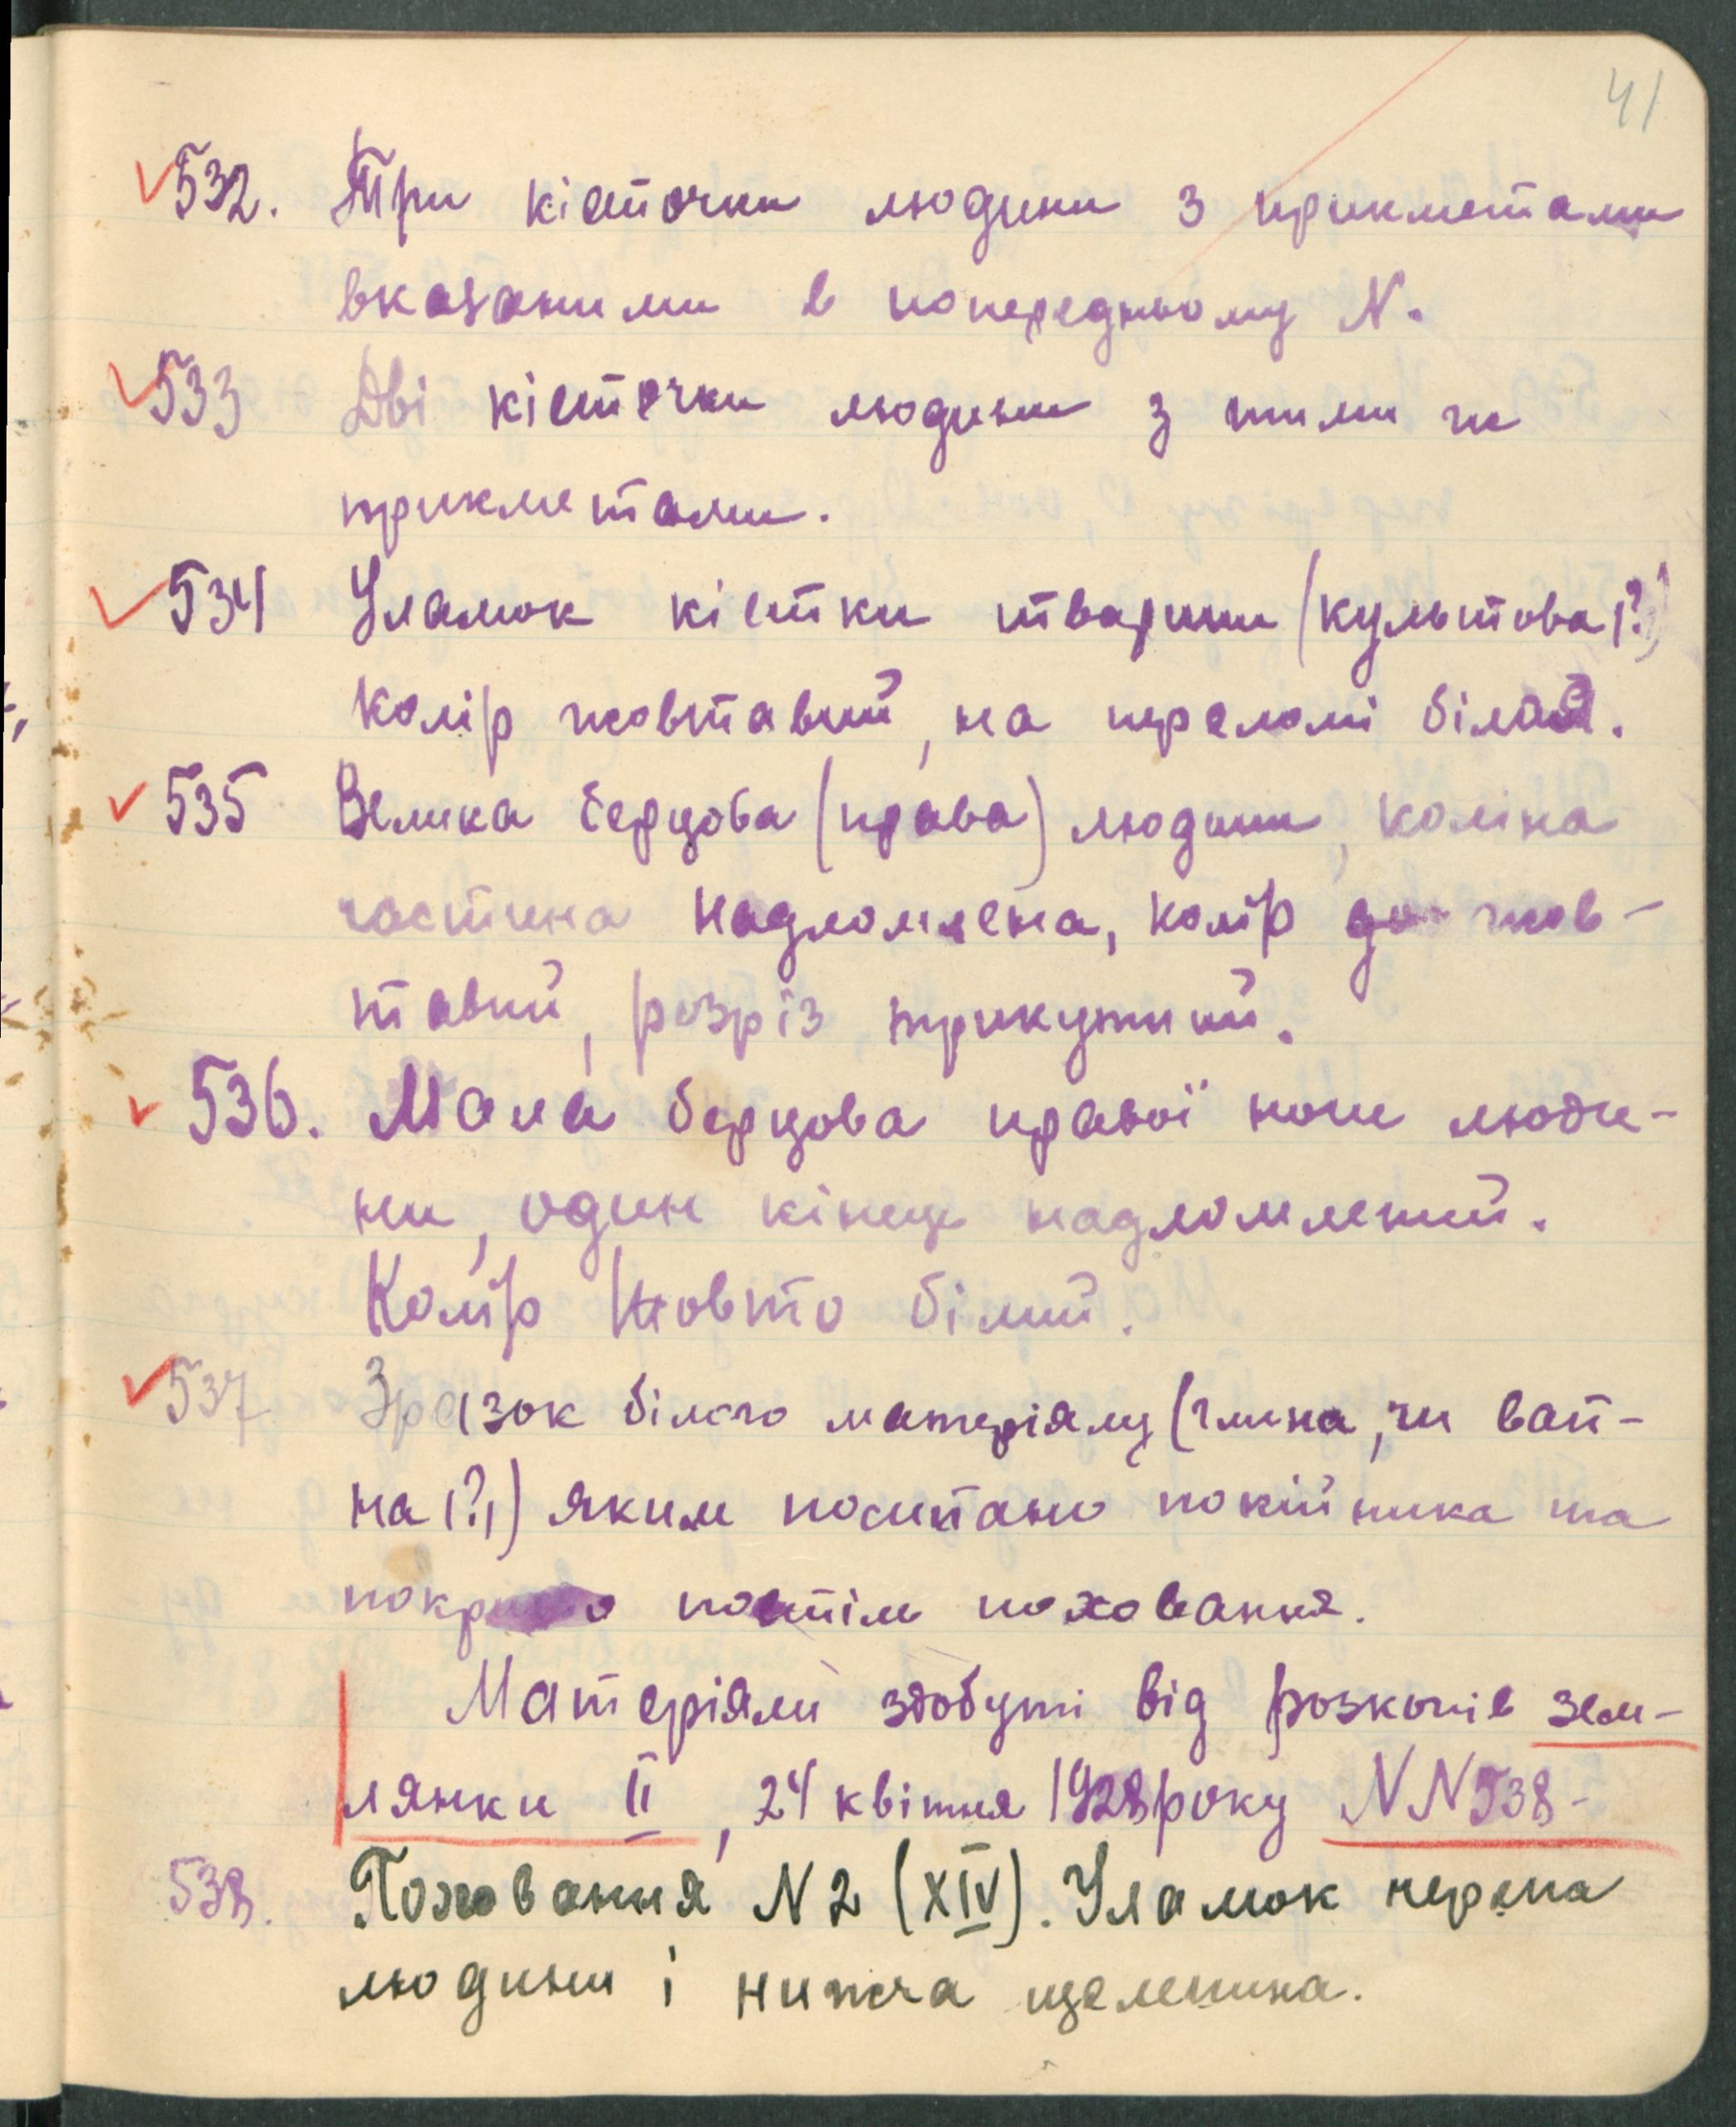 41
532. Три кісточки людини з прикметами
вказаними в попередньому N.
533 Дві кісточки людини з тими же
прикметами.
534 Уламок кістки тварини (культова(?)
колір жовтавий, на переломі білий.
535 Велика берцова (права) людини, колінна
частина надломлена, колір до жов-
тавий, розріз трикутний.
536. Мала берцова правої ноги люди-
ни, один кінець надломлений.
Колір жовто білий.
537 Зразок білого матеріялу (глина, чи вап-
на(?)) яким посипано покійника та
покрито постіль поховання.
Матеріяли здобуті від розкопів зем-
лянки II, 24 квітня 1928 року NN 538-
538. Поховання N 2 (XIV). Уламок черепа
людини і нижча щелепина.